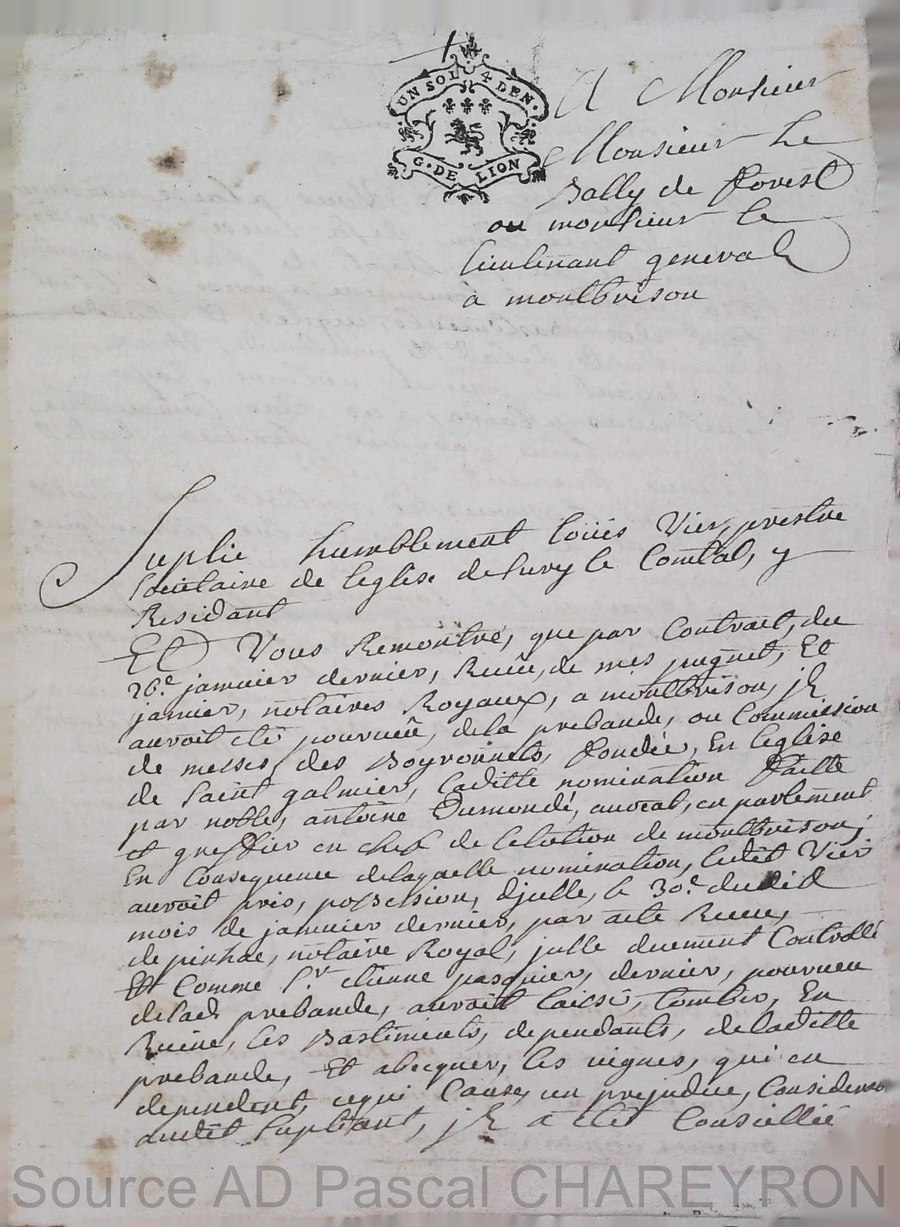 UN SOL 4 DEN.
G. DE LION
A Monsieur
Monsieur Le
Bally de Forest
ou monsieur le
lieutenant general
a montbrison
Suplie humblement Loüis Vier, prestre
sociétaire de leglise de Sury le Comtal, y
Residant
Et Vous Remontre, que par Contrait, du
26.e janvier dernier, Receu, de mes pugnet, Et
janier, notaires Royaux, a montbrison, jl
auroit été pourveü, de la prebande, ou Commission
de messes des Boyronnets, fondée, En leglise
de Saint galmier, Laditte nomination faitte
par noble, antoine Dumondé, avocat, en parlement
et greffier en chef de lelection de montbrison,
En Consequence de laquelle nomination, ledit Vier
auroit pris, possession, djcelle, le 30.e dudit
mois de janvier dernier, par acte Receu,
de pinhac, notaire Royal, jcelle duement Controllé
Et Comme Sr. etienne pasquier, dernier, pourveu
de lad. prebande, auroit laissé, tomber, En
Ruine, les Bastiments, dependants, de laditte
prebande, Et abecquer, les vignes, qui en
dependent, cequi Cause, un prejudice, Considerab
audit Supliant, jl a été Conseillié
Source AD Pascal CHAREYRON